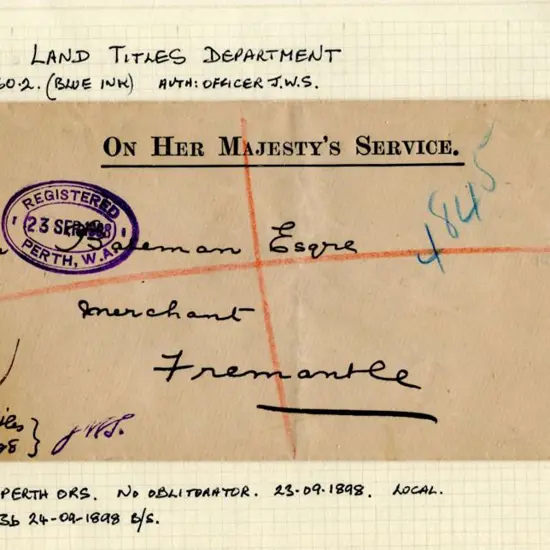 LAND TITLES DEPARTMENT
60.2. (BLUE INK) AUTH: OFFICER J.W.S.
ON HER MAJESTY'S SERVICE.
4845
REGISTERED
23 SEP 98
PERTH, W.A.
Bateman Esqre
Merchant
Fremantle
J.W.S.
PERTH ORS. NO OBLITORATOR. 23-09-1898. LOCAL.
3b 24-09-1898 B/S.